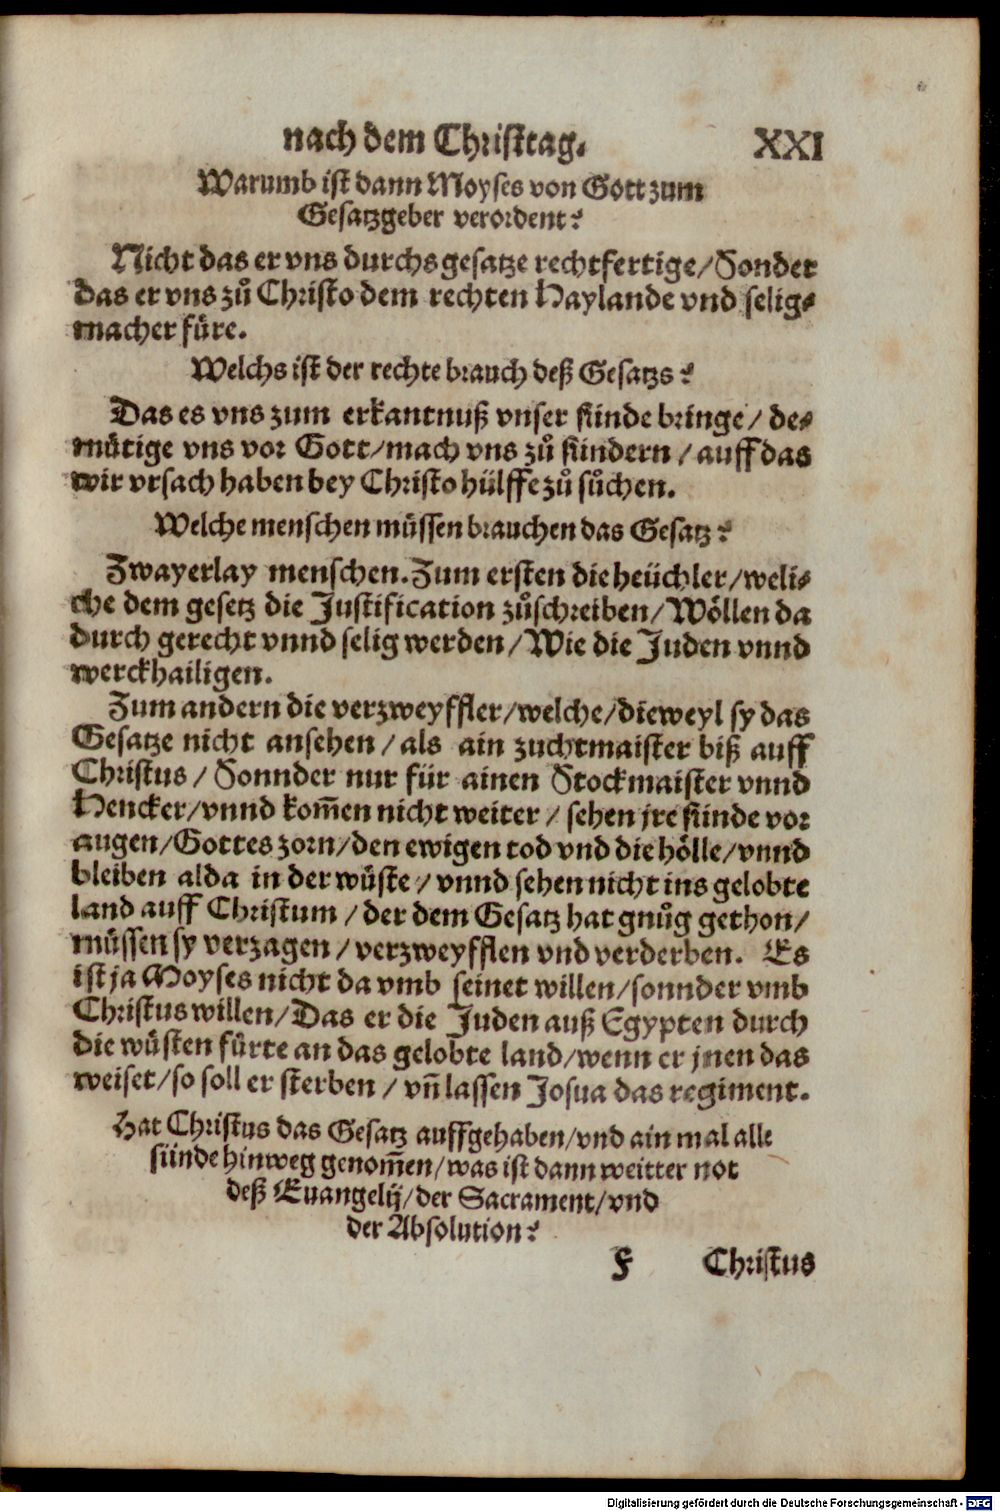 nach dem Christtag. XXI
Warumb ist dann Moyses von Gott zum
Gesatzgeber verordent?
Nicht das er vns durchs gesatze rechtfertige/ Sonder
das er vns zů Christo dem rechten Haylande vnd selig⸗
macher füre.
Welchs ist der rechte brauch deß Gesatzs?
Das es vns zum erkantnuß vnser sünde bringe/ de⸗
mütige vns vor Gott/ mach vns zů sündern/ auff das
wir vrsach haben bey Christo hülffe zů sůchen.
Welche menschen müssen brauchen das Gesatz?
Zwayerlay menschen. Zum ersten die heüchler/ weli⸗
che dem gesetz die Justification zůschreiben/ Wöllen da
durch gerecht vnnd selig werden/ Wie die Juden vnnd
werckhailigen.
Zum andern die verzweyffler/ welche/ dieweyl sy das
Gesatze nicht ansehen/ als ain zuchtmaister biß auff
Christus/ Sonnder nur für ainen Stockmaister vnnd
Hencker/ vnnd kom̃en nicht weiter/ sehen jre sünde vor
augen/ Gottes zorn/ den ewigen tod vnd die hölle/ vnnd
bleiben alda in der wüste/ vnnd sehen nicht ins gelobte
land auff Christum/ der dem Gesatz hat gnůg gethon/
müssen sy verzagen/ verzweyfflen vnd verderben. Es
ist ja Moyses nicht da vmb seinet willen/ sonnder vmb
Christus willen/ Das er die Juden auß Egypten durch
die wüsten fürte an das gelobte land/ wenn er jnen das
weiset/ so soll er sterben/ vñ lassen Josua das regiment.
Hat Christus das Gesatz auffgehaben/ vnd ain mal alle
sünde hinweg genom̃en/ was ist dann weitter not
deß Euangelij/ der Sacrament/ vnd
der Absolution?
F Christus
Digitalisierung gefördert durch die Deutsche Forschungsgemeinschaft - DFG